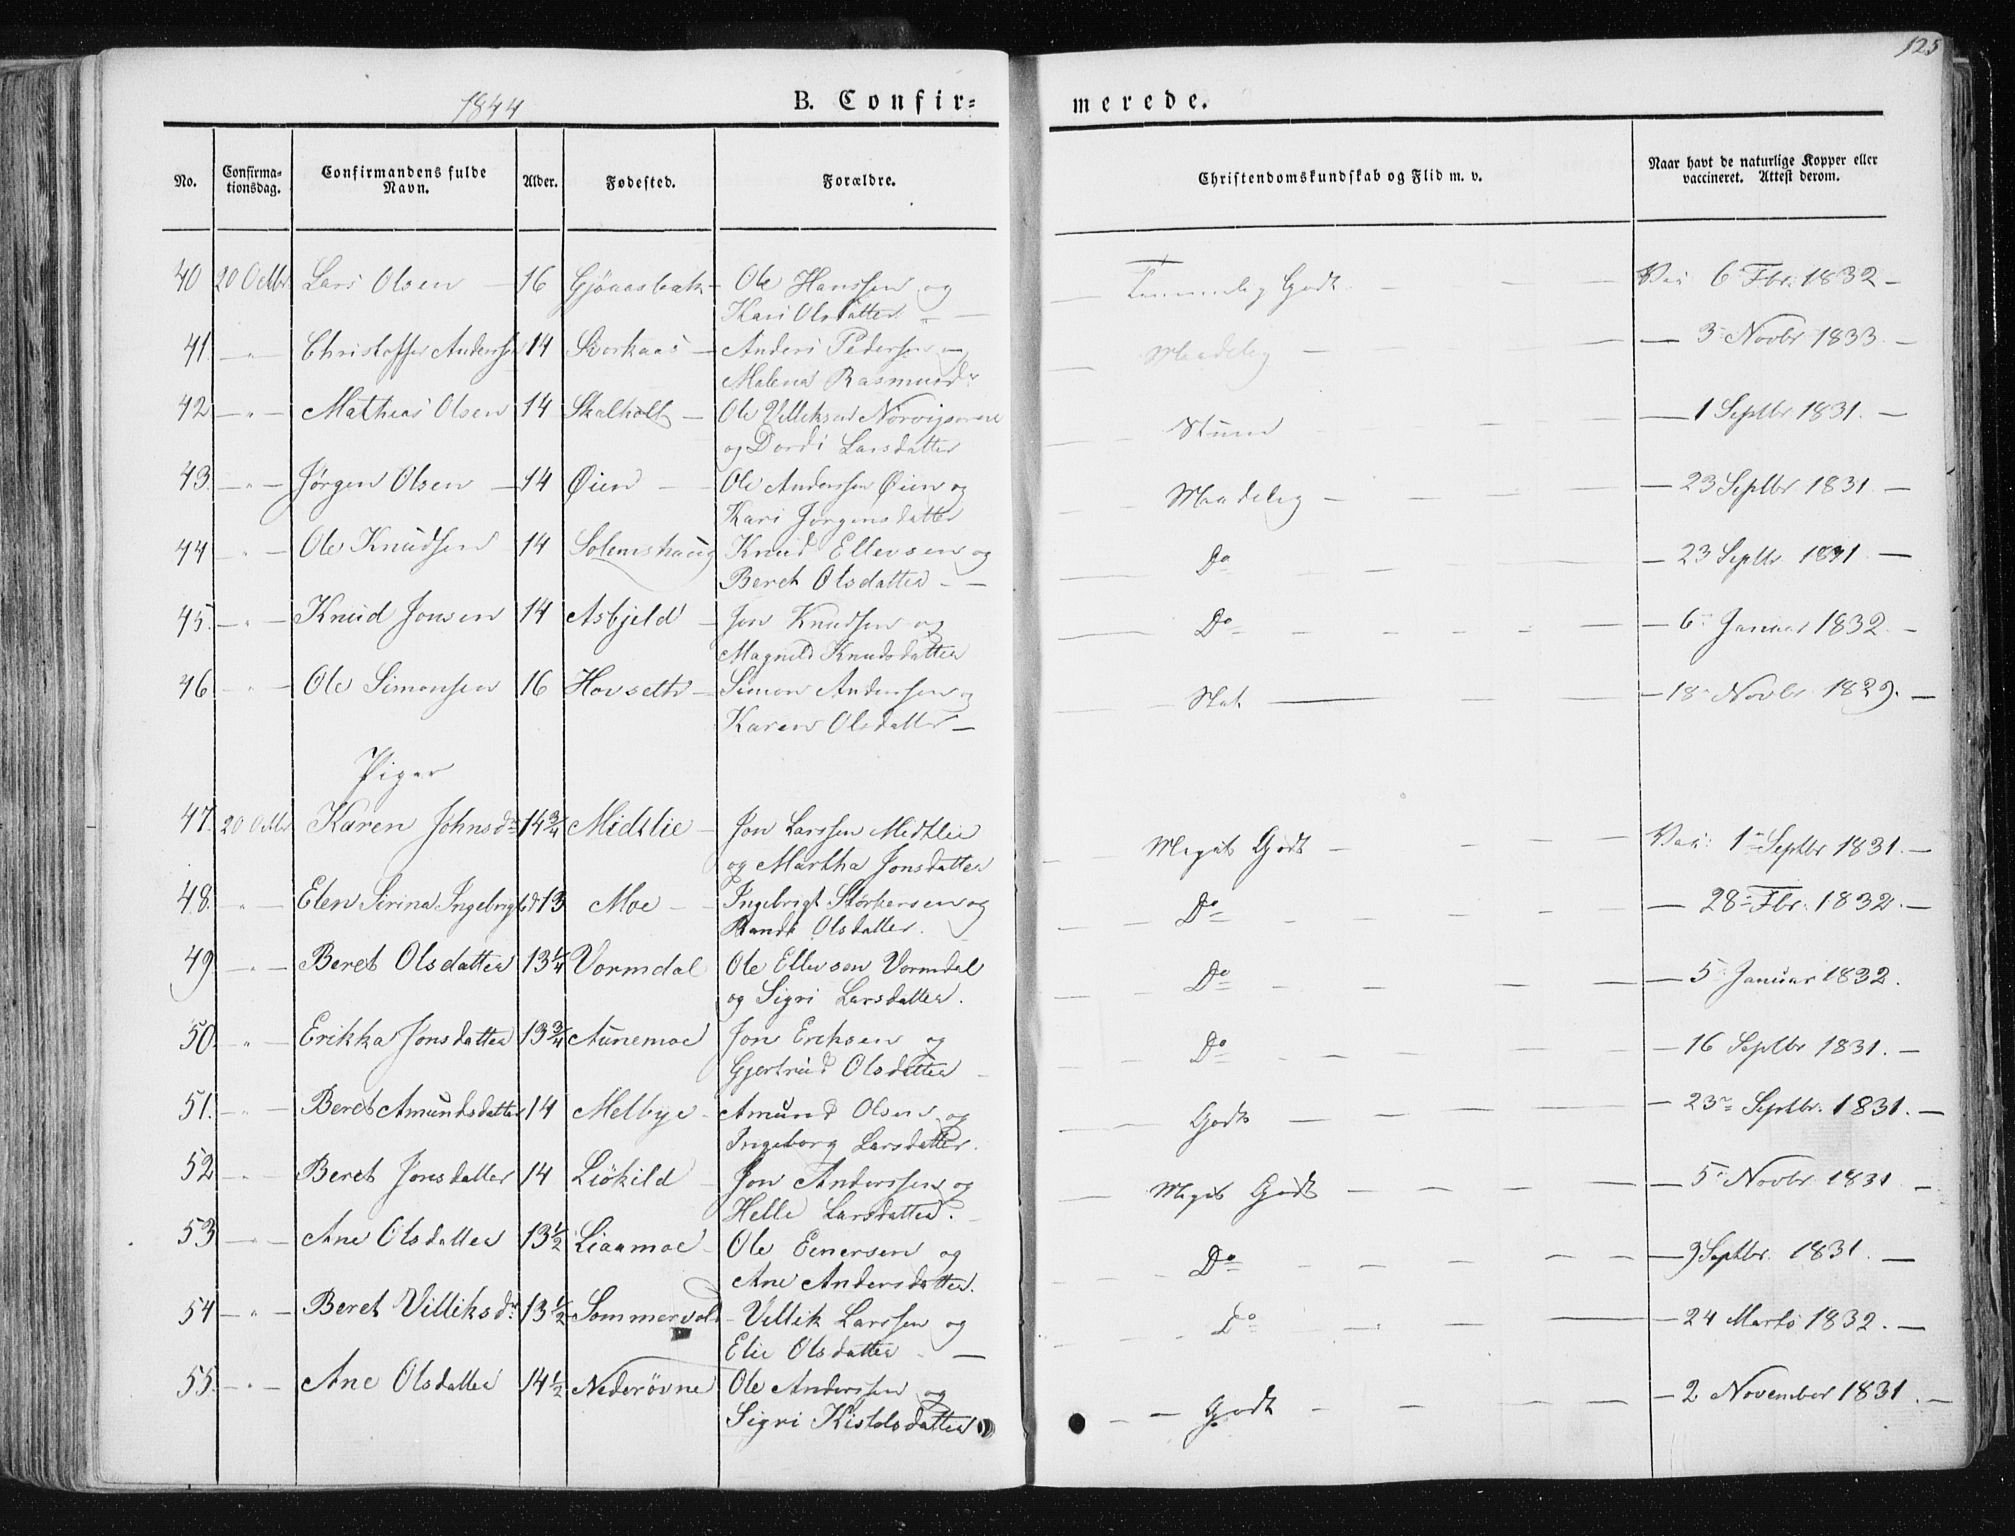 125
1844
B. Confir=
merede.
No.
Confirma-
tionsdag.
Confirmandens fulde
Navn.
Alder.
Fødested.
Forældre.
Christendomskundskab og Flid m. v.
Naar havt de naturlige Kopper eller
vaccineret. Attest derom.
40 20 Octbr Lars Olsen 16 Ole Hanssen og Godt Vac: 6 Fbr: 1832
Kari Olsdatter
41. Christoffer Anderssen 14 Anders Pedersen Maadelig 3 Novbr 1833
Malena Rasmusdr
42 Mathias Olsen 14 Skalholt Ole Villiksen 1 Septbr 1831.
og Dordi Larsdatter
43. Jørgen Olsen 14 Øien Ole Anderssen Øien og Maadelig 23 Septbr 1831
Kari Jørgensdatter
44 Ole Knudsen 14 Solemshaug Knud Ellevsen og Do 23 Septbr 1831
Beret Olsdatter
45. Knud Jonsen 14 Asbjeld Jon Knudsen og Do 6 Januar 1832
Magnild Knudsdatter
46 Ole Simonsen 16 Hovseth Simon Anderssen og 18 Novbr 1829.
Karen Olsdatter
Piger
47. 20 Octbr Karen Johnsdr 14 3/4 Midtlie Jon Larssen Midtlie Meget Godt Vac: 1 Septbr 1831.
og Martha Jonsdatter
48. Elen Serina Ingebrigtsd 13 Moe Ingebrigt Størkersen og Do 28 Fbr: 1832.
Randi Olsdatter.
49 Beret Olsdatter 13 1/4 Vormdal Ole Ellevsen Vormdal Do 5 Januar 1832.
og Sigri Larsdatter.
50. Erikka Jonsdatter 13 3/4 Aunemoe Jon Eriksen og Do 16 Septbr 1831.
Gjertrud Olsdatter
51. Beret Amundsdatter 14 Melbye Amund Olsen og Godt 23 Septbr. 1831.
Ingeborg Larsdatter.
52 Beret Jonsdatter 14 Liökild Jon Anderssen og Meget Godt 5 Novbr 1831
Helle Larsdatter.
53 Ane Olsdatter 13 1/2 Liaamoe Ole Einersen og Do 9 Septbr. 1831.
Ane Andersdatter.
54 Beret Villiksdr 13 1/2 Sommervold Villik Larssen og Do 24 Marts 1832.
Elie Olsdatter
55. Ane Olsdatter 14 1/2 Nederövne Ole Anderssen og Godt 2 November 1831.
Sigri Kistolsdatter